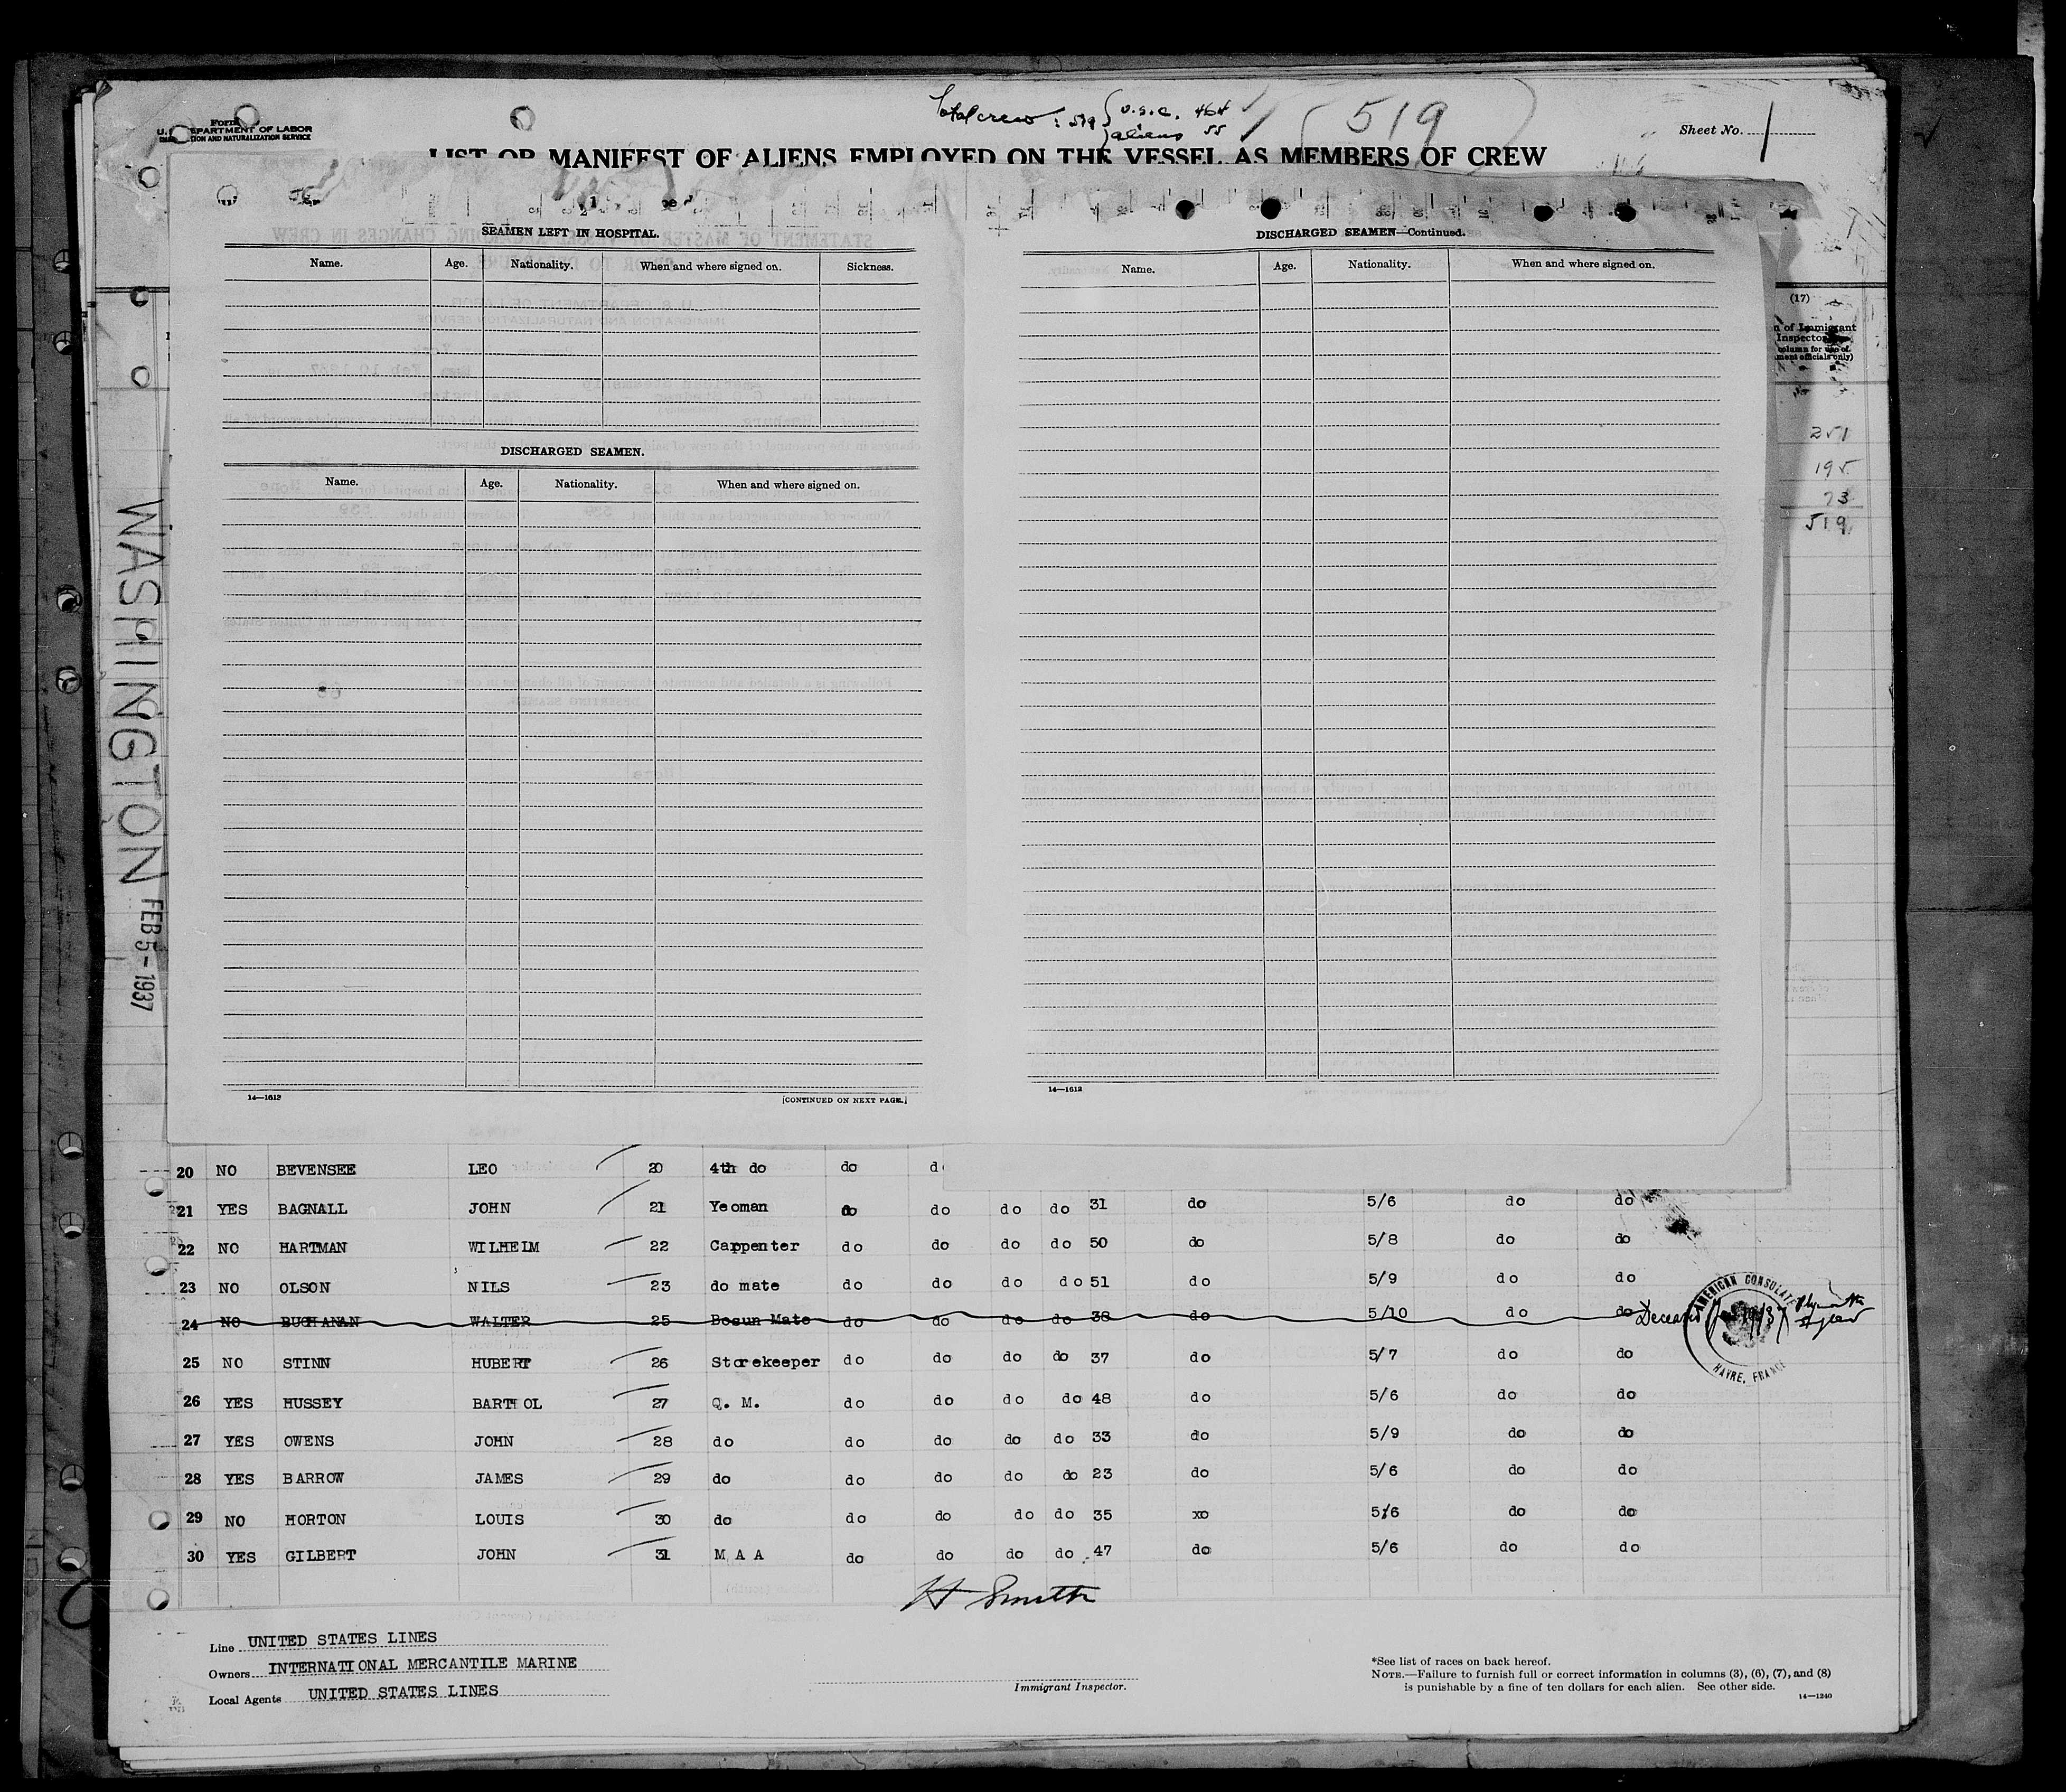 Total crew: 519 { U.S.C. 464
aliens 55
519
Form
U. S. DEPARTMENT OF LABOR
IMMIGRATION AND NATURALIZATION SERVICE
Sheet No. 1
LIST OR MANIFEST OF ALIENS EMPLOYED ON THE VESSEL AS MEMBERS OF CREW
SEAMEN LEFT IN HOSPITAL.
Name. Age. Nationality. When and where signed on. Sickness.
DISCHARGED SEAMEN.
Name. Age. Nationality. When and where signed on.
14—1612
[CONTINUED ON NEXT PAGE.]
DISCHARGED SEAMEN—Continued.
Name. Age. Nationality. When and where signed on.
14—1612
(17)
n of Immigrant
Inspector
column for use of
ment officials only)
251
195
73
519
WASHINGTON FEB 5-1937
20 NO BEVENSEE LEO 20 4th do do d
21 YES BAGNALL JOHN 21 Yeoman do do do do 31 do 5/6 do do
22 NO HARTMAN WILHELM 22 Carpenter do do do do 50 do 5/8 do do
23 NO OLSON NILS 23 do mate do do do do 51 do 5/9 do do
24 NO BUCHANAN WALTER 25 Bosun Mate do do do do 38 do 5/10 do do Deceased
AMERICAN CONSULATE
HAVRE, FRANCE
25 NO STINN HUBERT 26 Storekeeper do do do do 37 do 5/7 do do
26 YES HUSSEY BARTHOL 27 Q. M. do do do do 48 do 5/6 do do
27 YES OWENS JOHN 28 do do do do do 33 do 5/9 do do
28 YES BARROW JAMES 29 do do do do do 23 do 5/6 do do
29 NO HORTON LOUIS 30 do do do do do 35 xo 5/6 do do
30 YES GILBERT JOHN 31 M A A do do do do 47 do 5/6 do do
H Smith
Line UNITED STATES LINES
Owners INTERNATIONAL MERCANTILE MARINE
Local Agents UNITED STATES LINES
Immigrant Inspector.
*See list of races on back hereof.
NOTE.—Failure to furnish full or correct information in columns (3), (6), (7), and (8)
is punishable by a fine of ten dollars for each alien. See other side.
14—1240